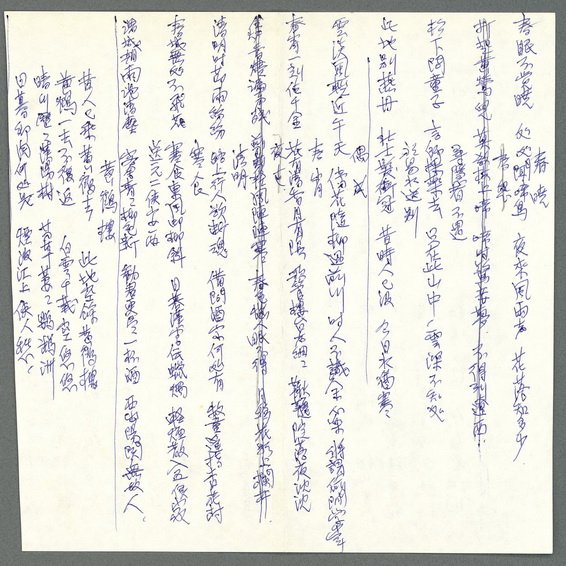 春曉
春眠不覺曉 處處聞啼鳥 夜來風雨聲 花落知多少
春怨
打起黃鶯兒 莫教枝上啼 啼時驚妾夢 不得到遼西
尋隱者不遇
松下問童子 言師採藥去 只在此山中 雲深不知處
易水送別
此地別燕丹 壯士髮衝冠 昔時人已沒 今日水猶寒
偶成
雲淡風輕近午天 傍花隨柳過前川 時人不識余心樂 將謂偷閒學少年
春宵
春宵一刻值千金 花有清香月有陰 歌管樓台細細 鞦韆院落夜沈沈
夜直
清明
清明時節雨紛紛 路上行人欲斷魂 借問酒家何處有 牧童遙指杏花村
寒食
春城無處不飛花 寒食東風御柳斜 日暮漢宮傳蠟燭 輕煙散入五侯家
送元二使安西
渭城朝雨浥輕塵 客舍青青柳色新 勸君更盡一杯酒 西出陽關無故人
黃鶴樓
昔人已乘黃鶴去 此地空餘黃鶴樓
黃鶴一去不復返 白雲千載空悠悠
晴川歷歷漢陽樹 芳草萋萋鸚鵡洲
日暮鄉關何處是 煙波江上使人愁